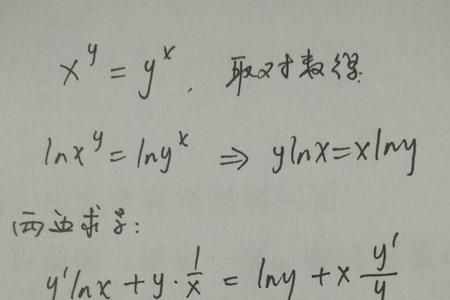 x^y = y^x, 取对数得:
lnx^y = lny^x ⇒ ylnx = xlny
两边求导:
y'lnx + y·1/x = lny + x y'/y